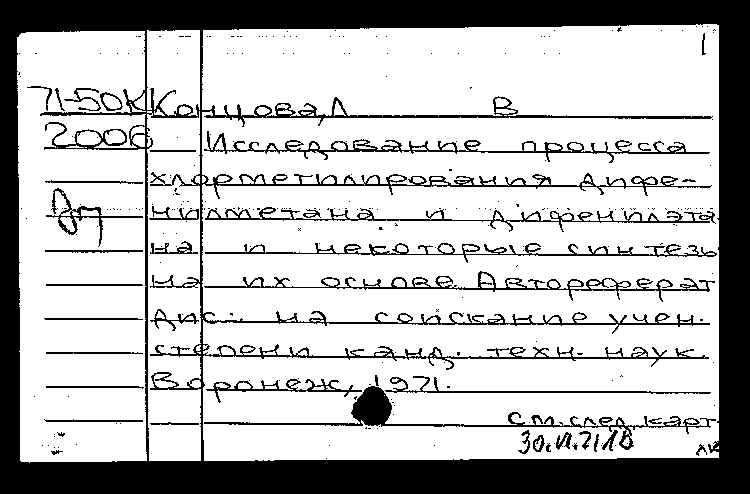 1
71-50К Концова, Л В
2006 Исследование процесса
хлорметилирования дифе-
нилметана и дифенилэта
на и некоторые синтезы
на их основе. Автореферат
дис. на соискание учен.
степени канд. техн. наук.
Воронеж, 1971.
см. след. карт